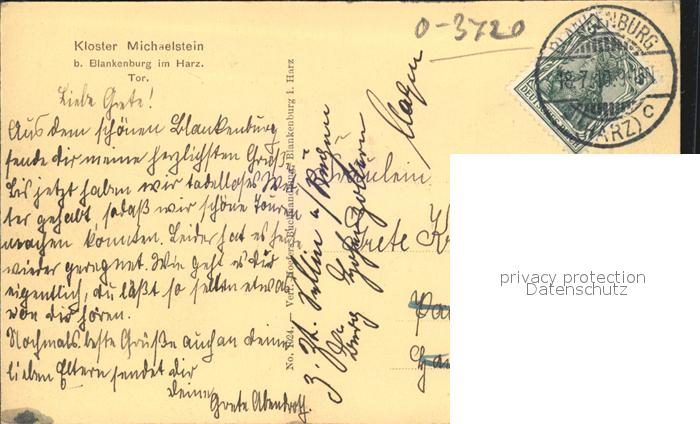 Kloster Michaelstein
b. Blankenburg im Harz.
Tor.
0-3720
BLANKENBURG
(HARZ) C
DEUTSCHES REICH
Liebe Grete!
Aus dem schönen Blankenburg
sende dir meine herzlichsten Grüße.
Bis jetzt haben wir tadelloses Wet-
ter gehabt, sodaß wir schöne Touren
machen konnten. Leider hat es heute
wieder geregnet. Wie geht es dir
eigentlich, du läßt so selten etwas
von dir hören.
Nochmals beste Grüße auch an deine
lieben Eltern sendet dir
Deine
Grete Abendroth.
No. 1624. Verl. Roeders Buchhandlung, Blankenburg i. Harz
Fräulein
Grete
z. Zt.
privacy protection
Datenschutz